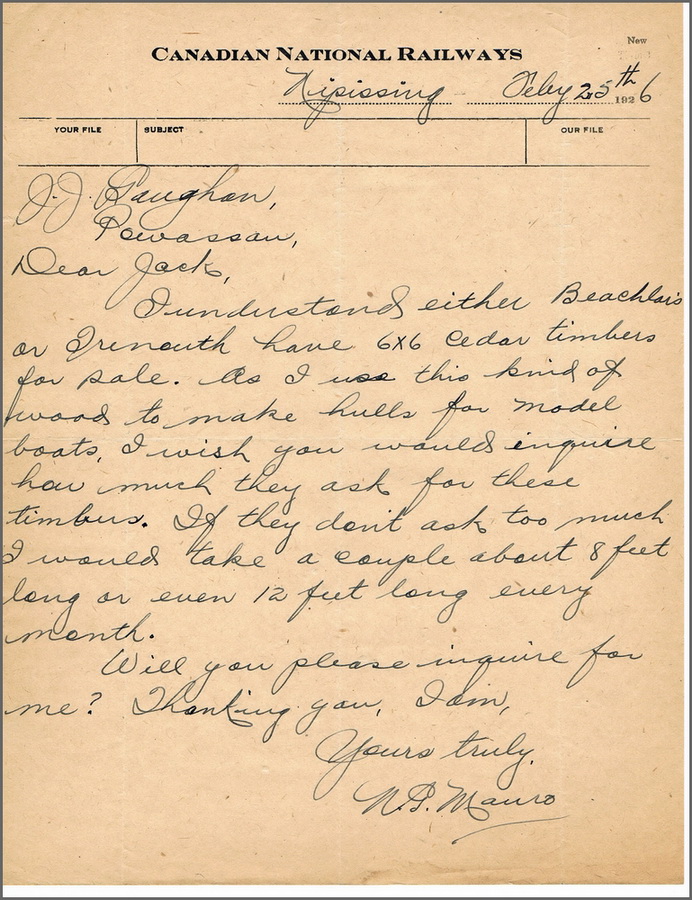 New
CANADIAN NATIONAL RAILWAYS
Nipissing Feby 25th 1926
YOUR FILE SUBJECT OUR FILE
J. J. Gaughan,
Powassan,
Dear Jack,
I understand either
or Trenouth have 6x6 cedar timbers
for sale. As I use this kind of
wood to make hulls for model
boats, I wish you would inquire
how much they ask for these
timbers. If they don't ask too much
I would take a couple about 8 feet
long or even 12 feet long every
month.
Will you please inquire for
me? Thanking you, I am,
Yours truly,
Mauro